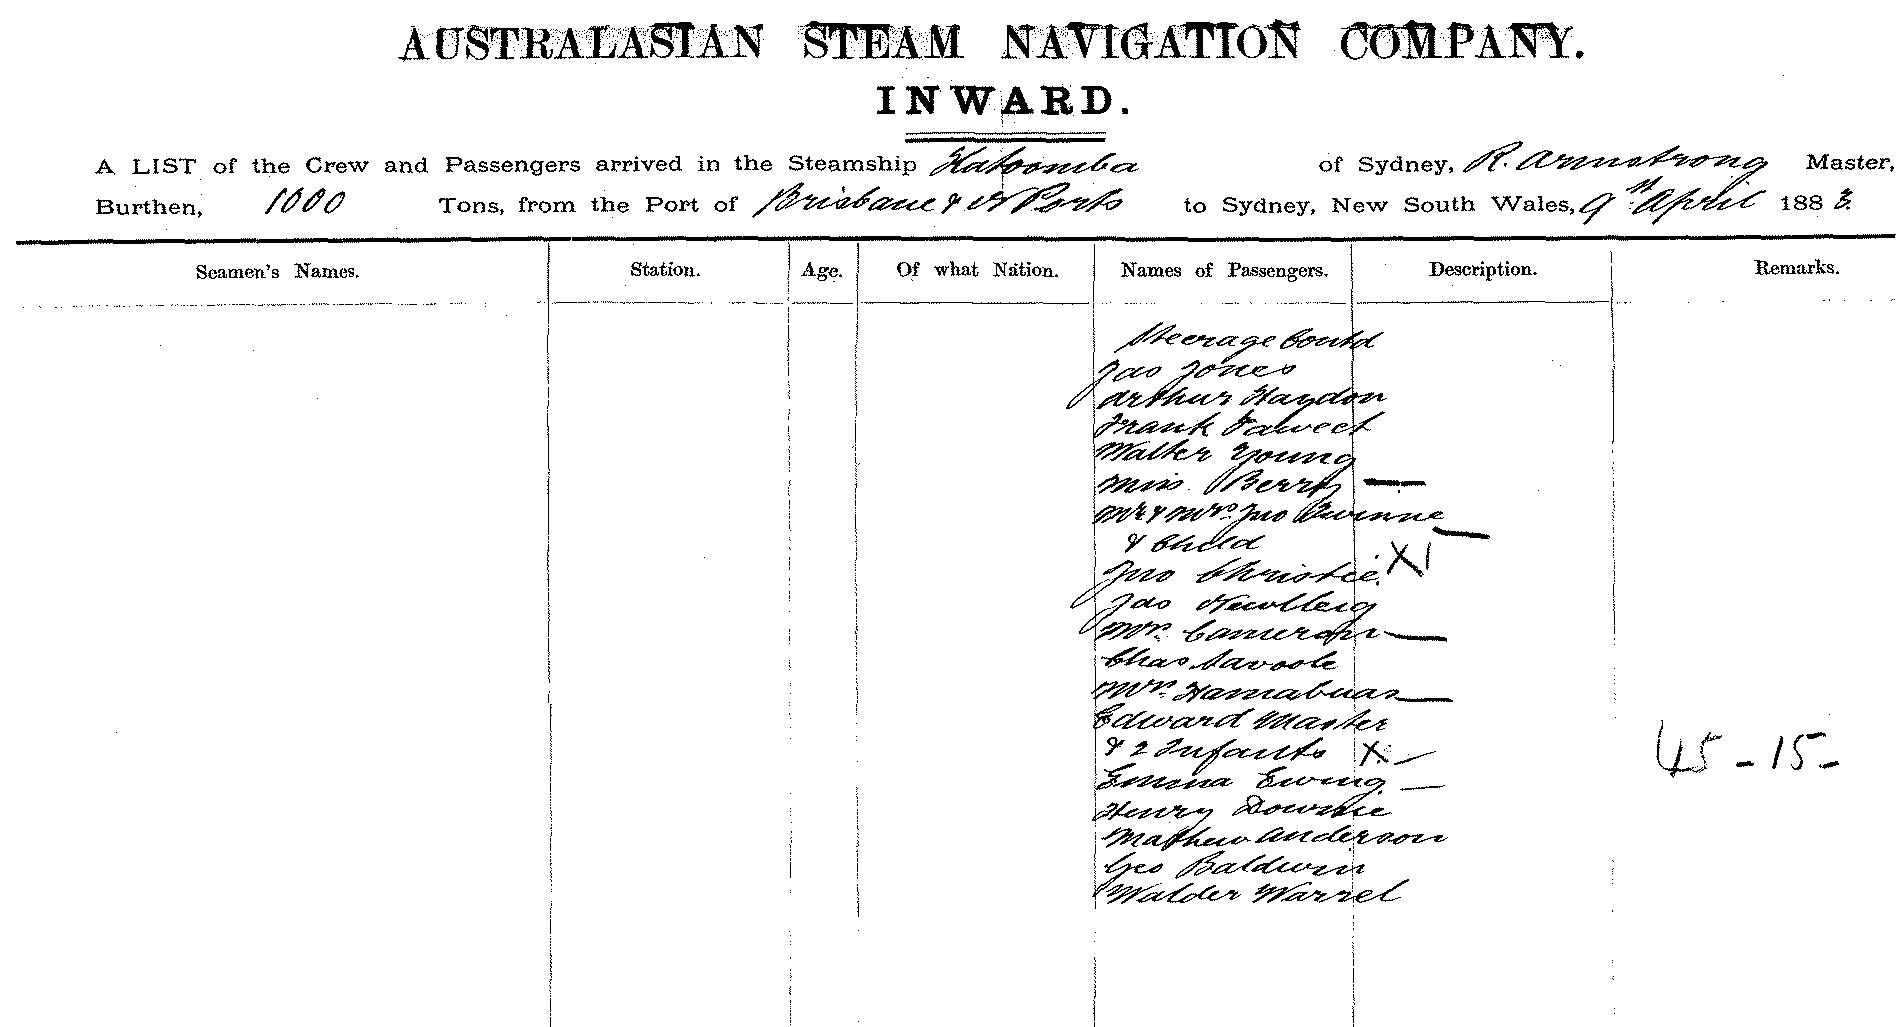 AUSTRALASIAN STEAM NAVIGATION COMPANY.
INWARD.
A LIST of the Crew and Passengers arrived in the Steamship Katoomba of Sydney, R. Armstrong Master,
Burthen, 1000 Tons, from the Port of Brisbane & N Ports to Sydney, New South Wales, 9th April 1883.
Seamen's Names. Station. Age. Of what Nation. Names of Passengers. Description. Remarks.
Steerage Contd
Jas Jones
Arthur Haydon
Frank Fawcet
Walter Young
Miss Berry —
Mr & Mrs Jno —
& Child
X1
Jno Christie.
Jas
Cameron —
Chas
—
Edward Master
& 2 Infants X —
45 - 15 -
Emma Ewing. —
Henry Downie
Mathew Anderson
Geo Baldwin
Walder Warrel